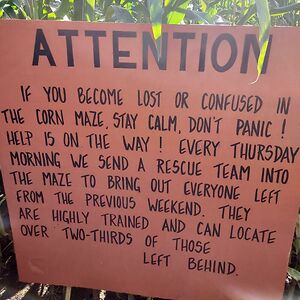 ATTENTION
IF YOU BECOME LOST OR CONFUSED IN
THE CORN MAZE, STAY CALM, DON'T PANIC!
HELP IS ON THE WAY! EVERY THURSDAY
MORNING WE SEND A RESCUE TEAM INTO
THE MAZE TO BRING OUT EVERYONE LEFT
FROM THE PREVIOUS WEEKEND. THEY
ARE HIGHLY TRAINED AND CAN LOCATE
OVER TWO-THIRDS OF THOSE
LEFT BEHIND.